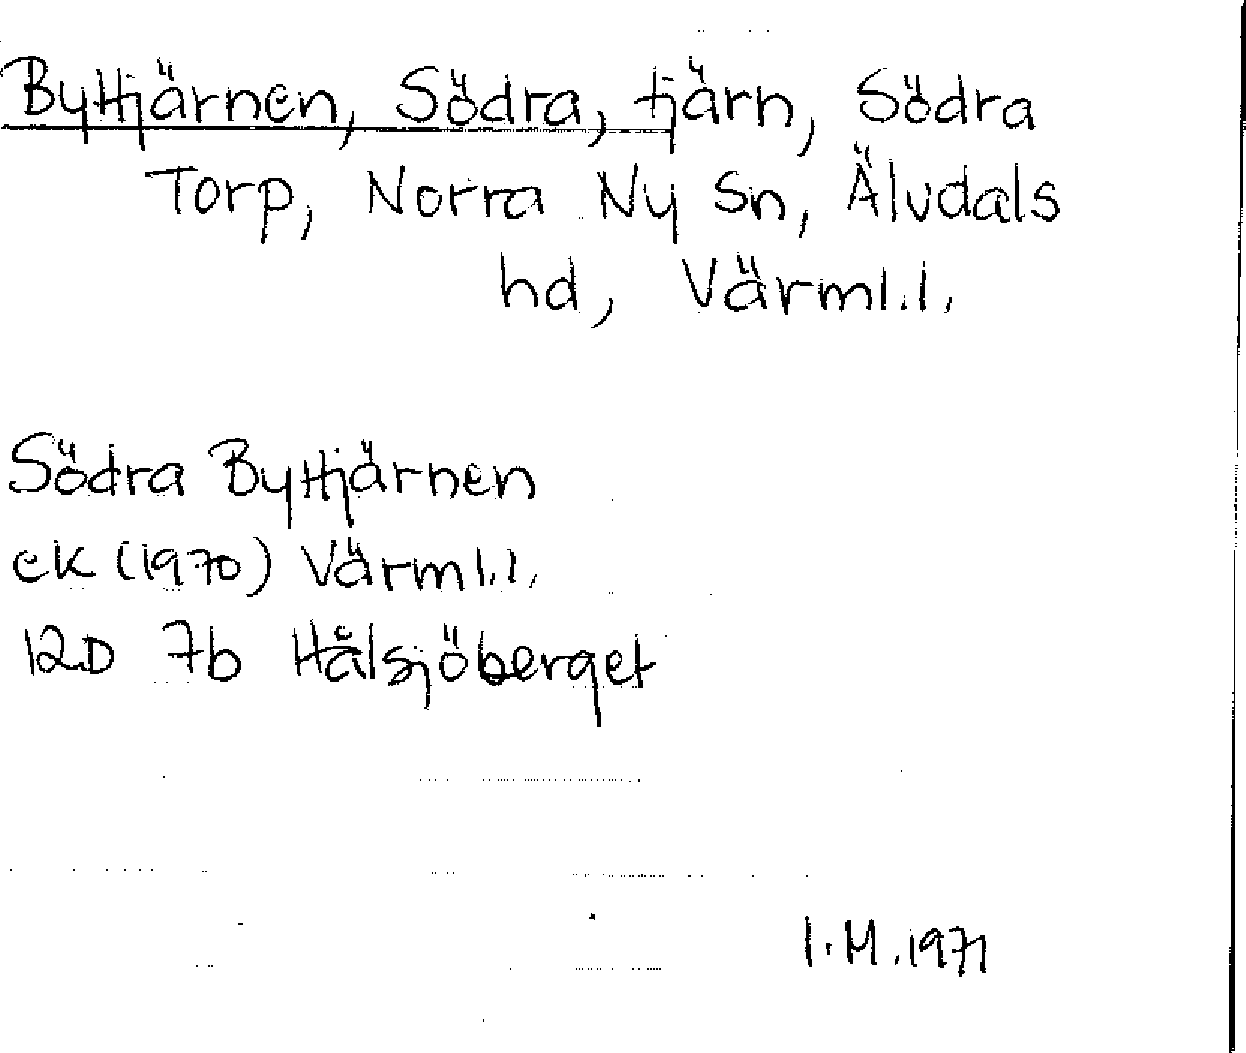 Byttjärnen, Södra, tjärn, Södra
Torp, Norra Ny Sn, Älvdals
hd, Värml.l.
Södra Byttjärnen
ek (1970) Värml.l.
12D 7b Hålsjöberget
I.M.1971